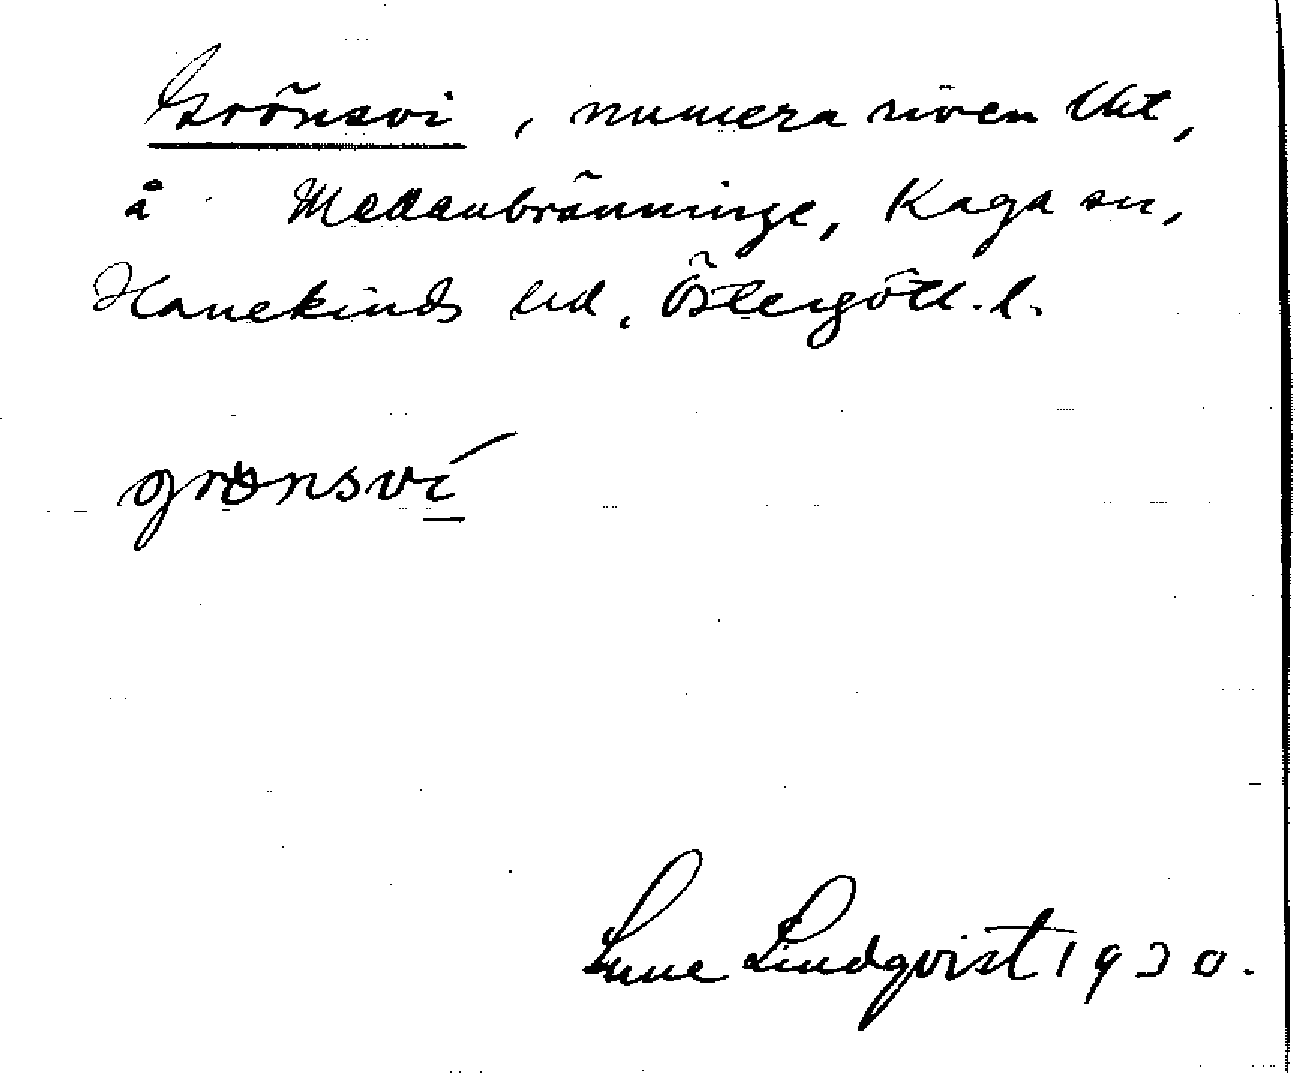 Grönsvi, numera riven lht,
å Mellanbränninge, Kaga sn,
Hanekinds hd, Östergötl. l.
grönsvi
Sune Lindqvist 1930.